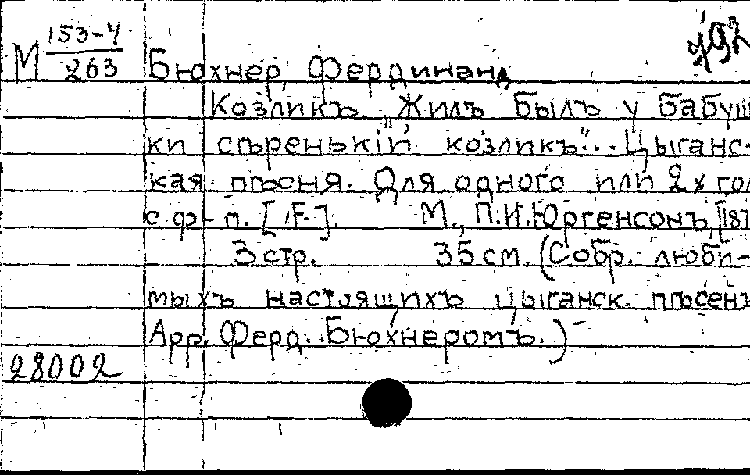 М 153-4/263 Бюхнер, Фердинанд
Козликъ „Жилъ былъ у бабуш-
ки съренькiй козликъ"... Цыганс-
кая пъсня. Для одного или 2х гол
с ф-п. [F]. М., П.И.Юргенсонъ, [187
3 стр. 35 см. (Собр. люби-
мыхъ настоящихъ цыганск. пъсенъ
Арр. Ферд. Бюхнеромъ.)
28002